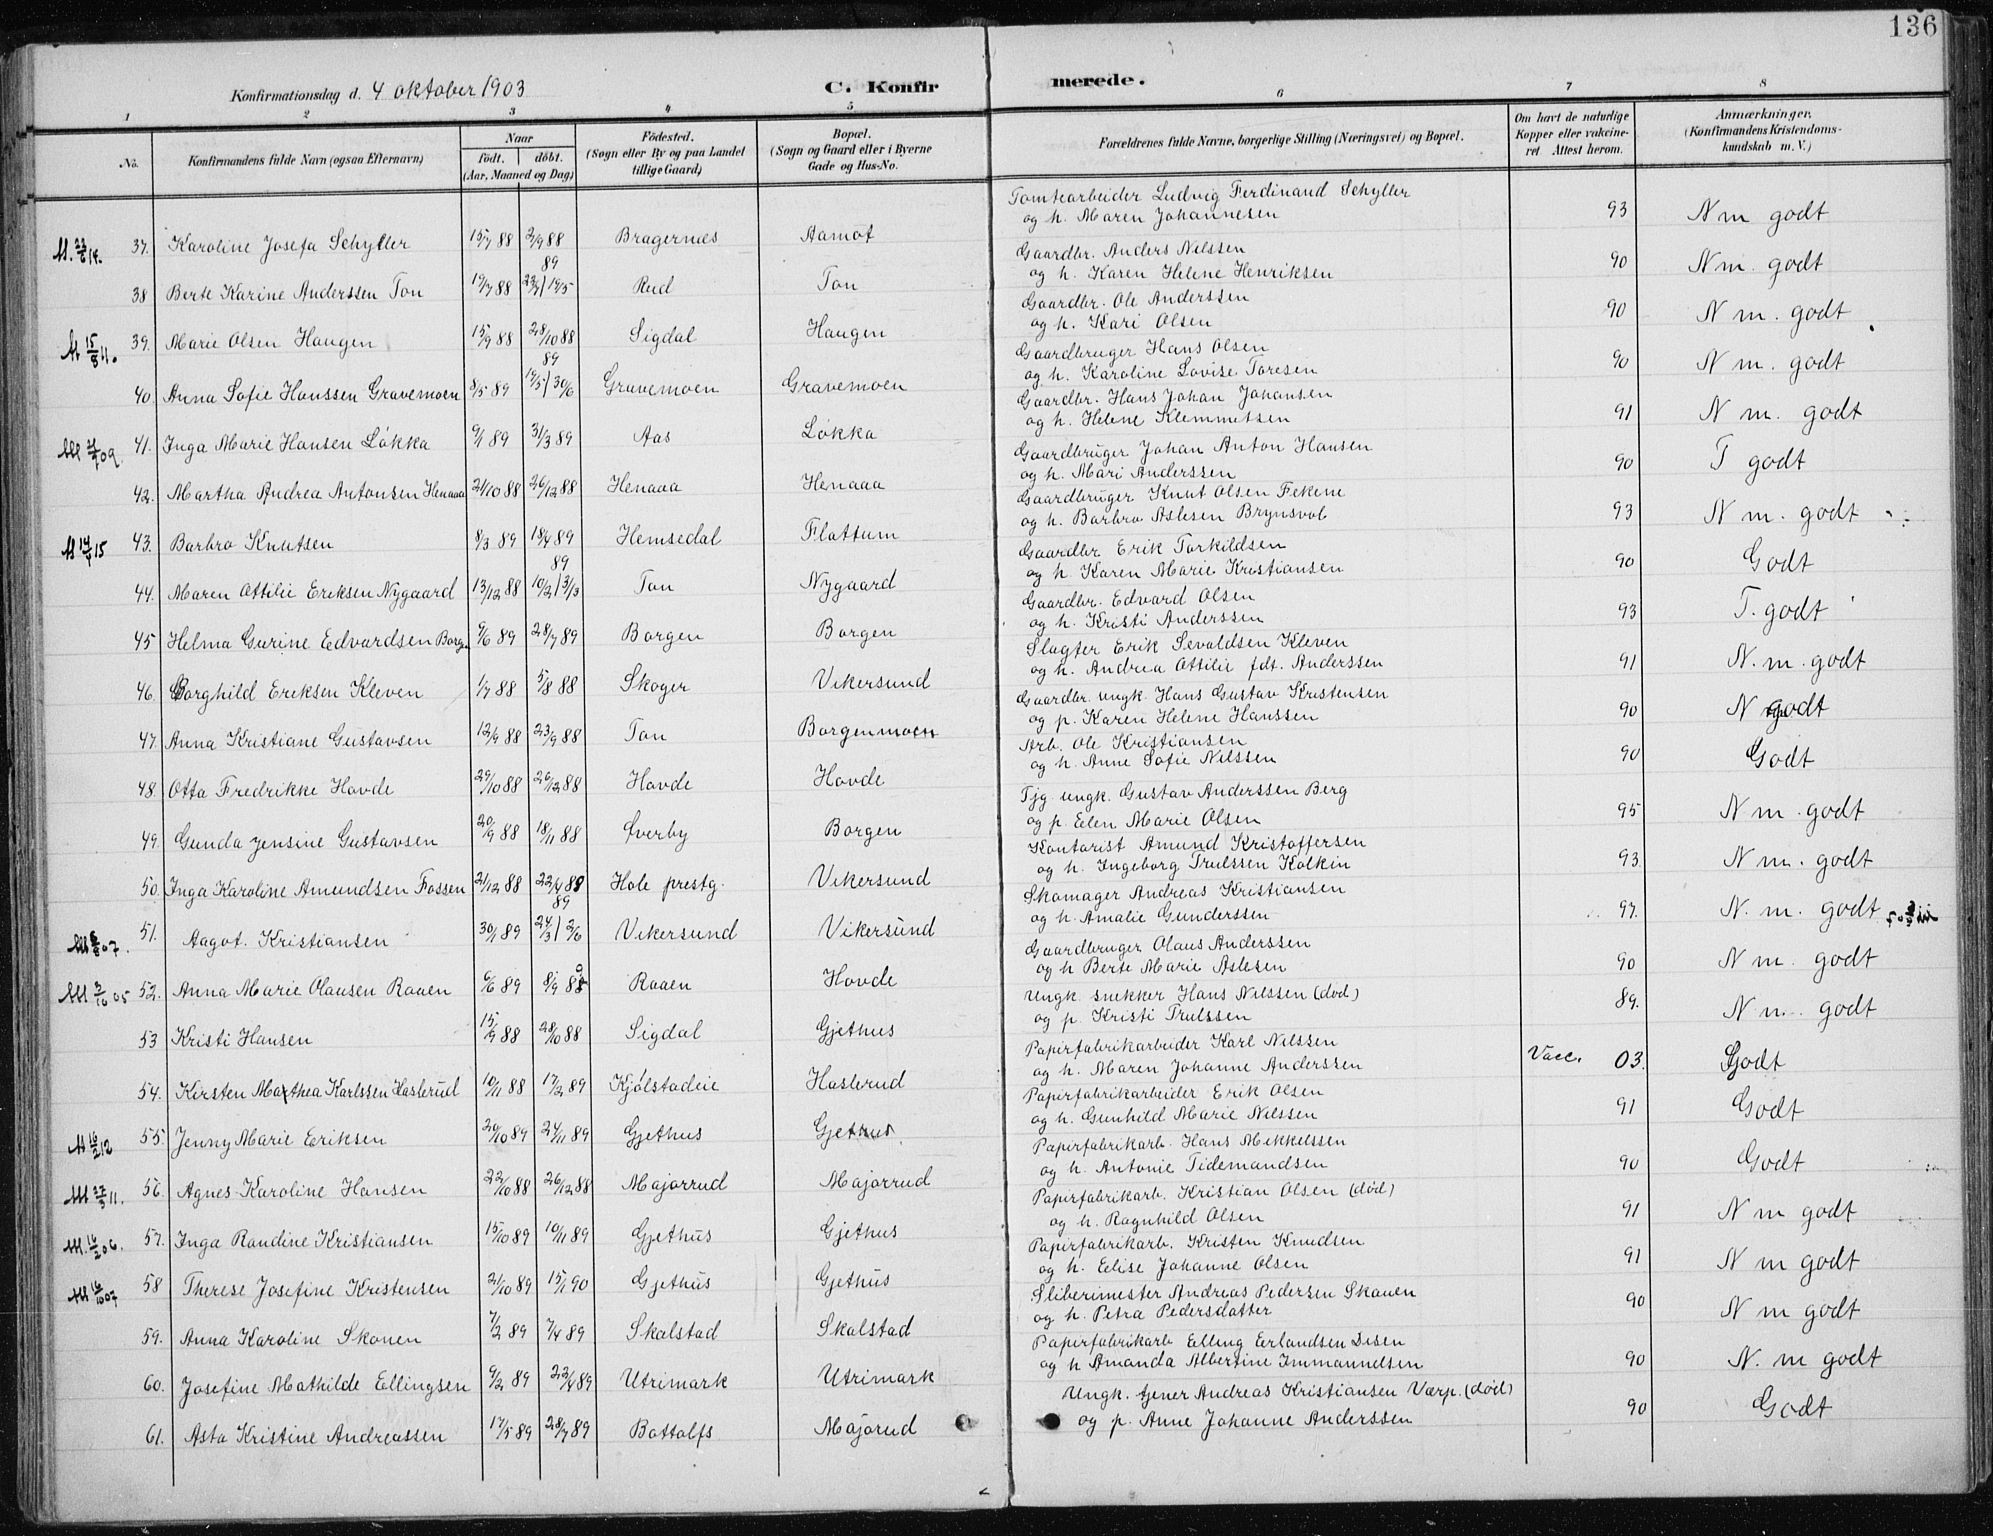 136
Konfirmationsdag d. 4 oktober 1903
C. Konfirmerede.
1 2 3 4 5 6 7 8
No. Konfirmandens fulde Navn (ogsaa Efternavn) Naar født. døbt. (Aar, Maaned og Dag) Fødested. (Sogn eller By og paa Landet tillige Gaard) Bopæl. (Sogn og Gaard eller i Byerne Gade og Hus-No. Forældrenes fulde Navne, borgerlige Stilling (Næringsvei) og Bopæl. Om havt de naturlige Kopper eller vakcineret. Attest herom. Anmærkninger. (Konfirmandens Kristendomskundskab m. V.)
37. Karoline Josefa Schyller 15/7 88 2/9 88 Bragernæs Aamot Tomtearbeider Ludvig Ferdinand Schyller og h. Maren Johannesen 93 N m godt
38 Berte Karine Anderssen Ton 19/7 88 19/5 89 Rud Ton Gaardbr. Anders Nilssen og h. Karen Helene Henriksen 90 N m. godt
39. Marie Olsen Haugen 15/9 88 28/10 88 Sigdal Haugen Gaardbr. Ole Anderssen og h. Kari Olsen 90 N m. godt
40. Anna Sofie Hanssen Gravemoen 8/5 89 19/5 | 30/6 89 Gravemoen Gravemoen Gaardbruger Hans Olsen og h. Karoline Lovise Toresen 90 N m. godt
41. Inga Marie Hansen Løkka 9/1 89 31/3 89 Aas Løkka Gaardbr. Hans Johan Johansen og h. Helene Klemmetsen 91 N m. godt
42. Martha Andrea Antonsen Henaaa 21/10 88 26/12 88 Henaaa Henaaa Gaardbruger Johan Anton Hansen og h. Mari Anderssen 90 T godt
43. Barbro Knutsen 8/3 89 18/4 89 Hemsedal Flattum Gaardbruger Knut Olsen Fekene og h. Barbro Aslesen Brynsvol 93 N m. godt
44. Maren Ottilie Eriksen Nygaard 13/12 88 10/2 | 3/3 89 Ton Nygaard Gaardbr Erik Torkildsen og h. Karen Marie Kristiansen 90 Godt
45 Helma Gurine Edvardsen Borgen 9/6 89 28/7 89 Borgen Borgen Gaardbr. Edvard Olsen og h. Kristi Anderssen 93 T. godt
46. Borghild Eriksen Kleven 1/7 88 5/8 88 Skoger Vikersund Slagter Erik Sevaldsen Kleven og h. Andrea Ottilie fdt. Anderssen 91 N. m. godt
47. Anna Kristiane Gustavsen 12/9 88 23/9 88 Ton Borgenmoen Gaardbr. ungk. Hans Gustav Kristensen og p. Karen Helene Hanssen 90 N godt
48. Otta Fredrikke Hovde 29/10 88 26/12 88 Hovde Hovde Arb. Ole Kristiansen og h. Anne Sofie Nilssen 90 Godt
49. Gunda Jensine Gustavsen 20/9 88 18/11 88 Sverby Borgen Tjg ungk. Gustav Anderssen Berg og p. Elen Marie Olsen 95 N m. godt
50. Inga Karoline Amundsen Fossen 21/12 88 22/4 89 Hole prestg. Vikersund Kontorist Amund Kristoffersen og h. Ingeborg Trulssen Kolkin 93. N m. godt
51. Aagot. Kristiansen 30/1 89 24/3 | 2/6 89 Vikersund Vikersund Skomager Andreas Kristiansen og h. Amalie Gunderssen 97. N. m. godt
52. Anna Marie Olausen Raaen 6/6 89 8/9 89 Raaen Hovde Gaardbruger Olaus Anderssen og h Berte Marie Aslesen 90 N m. godt
53 Kristi Hansen 15/9 88 28/10 88 Sigdal Gjethus Ungk. snekker Hans Nilssen (død) og p. Kristi Trulssen 89. N m. godt
54. Kirsten Marthea Karlssen Haslerud 10/11 88 17/2 89 Kjølstadeie Haslerud Papirfabrikarbeider Karl Nilssen og h. Maren Johanne Anderssen Vacc. 03. Godt
55. Jenny Marie Eriksen 20/10 89 24/11 89 Gjethus Gjethus Papirfabrikarbeider Erik Olsen og h. Gunhild Marie Nilssen 91 Godt
56. Agnes Karoline Hansen 22/10 88 26/12 88 Majorrud Majorrud Papirfabrikarb. Hans Mikkelssen og h. Antonie Tidemandsen 90 Godt
57. Inga Randine Kristiansen 15/10 89 10/11 89 Gjethus Gjethus Papirfabrikarb. Kristian Olsen (død) og h. Ragnhild Olsen 91 N m godt
58 Therese Josefine Kristensen 21/10 89 15/1 90 Gjethus Gjethus Papirfabrikarb. Kristen Knudsen og h. Elise Johanne Olsen 91 N m godt
59. Anna Karoline Skouen 7/2 89 7/4 89 Skalstad Skalstad Sliberimester Andreas Pedersen Skauen og h. Petra Pedersdatter 90 N m godt
60. Josefine Mathilde Ellingsen 9/2 89 22/4 89 Utrimark Utrimark Papirfabrikarb Elling Erlandsen Disen og h Amanda Albertine Immanuelsen 90 N. m godt
61. Asta Kristine Andreassen 17/5 89 28/7 89 Bottolfs Majorud Ungk. tjener Andreas Kristiansen Værp. (død) og p. Anne Johanne Anderssen 90 Godt